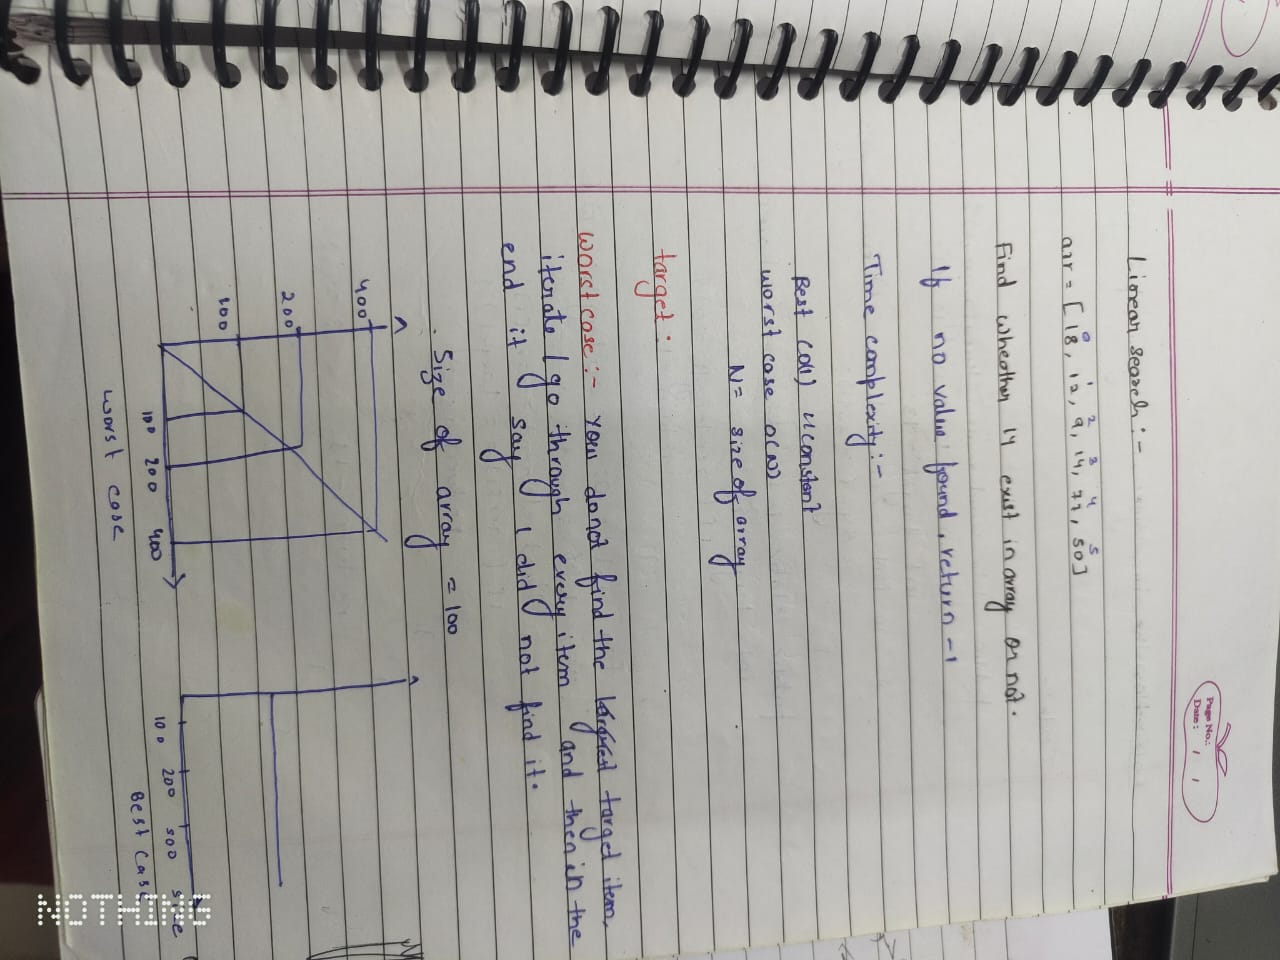 Page No.:
Date: / /
Linear search:-
0 1 2 3 4 5
arr = [18, 12, 9, 14, 77, 50]
Find wheather 14 exist in array or not.
If no value found, return -1
Time complexity:-
Best (O(1)
constant
worst case O(N)
N = size of array
target.
worst case:- you donot find the target item,
iterate / go through every item and then in the
end it say I did not find it.
Size of array = 100
400
200
100
100 200 400
worst case
100 200 500 size
Best Case
NOTHING